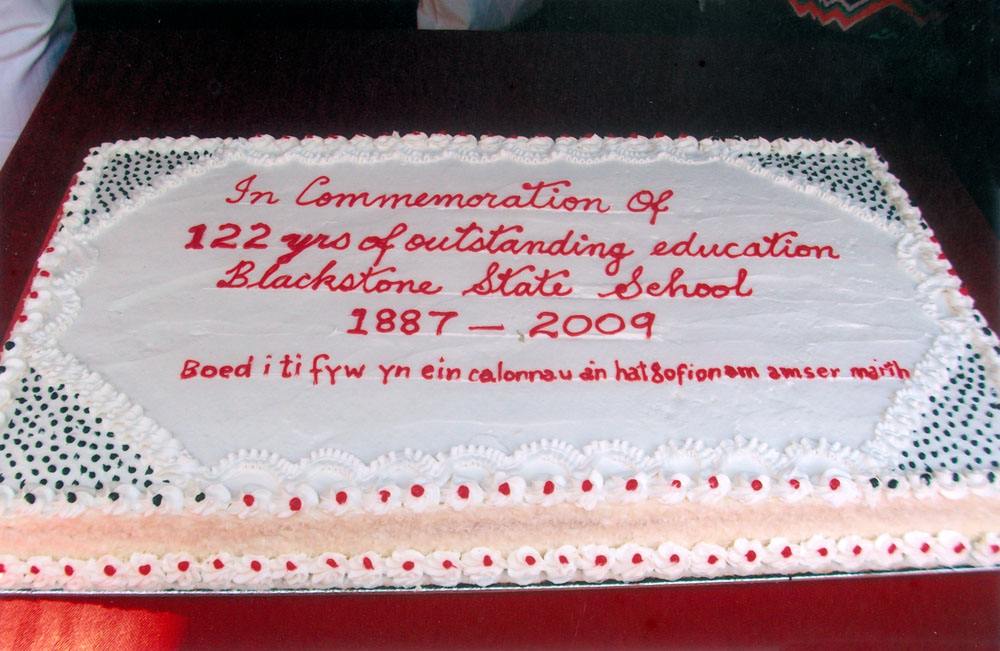 In Commemoration Of
122 yrs of outstanding education
Blackstone State School
1887 – 2009
Boed i ti fyw yn ein calonnau a'n hatgofion am amser maith